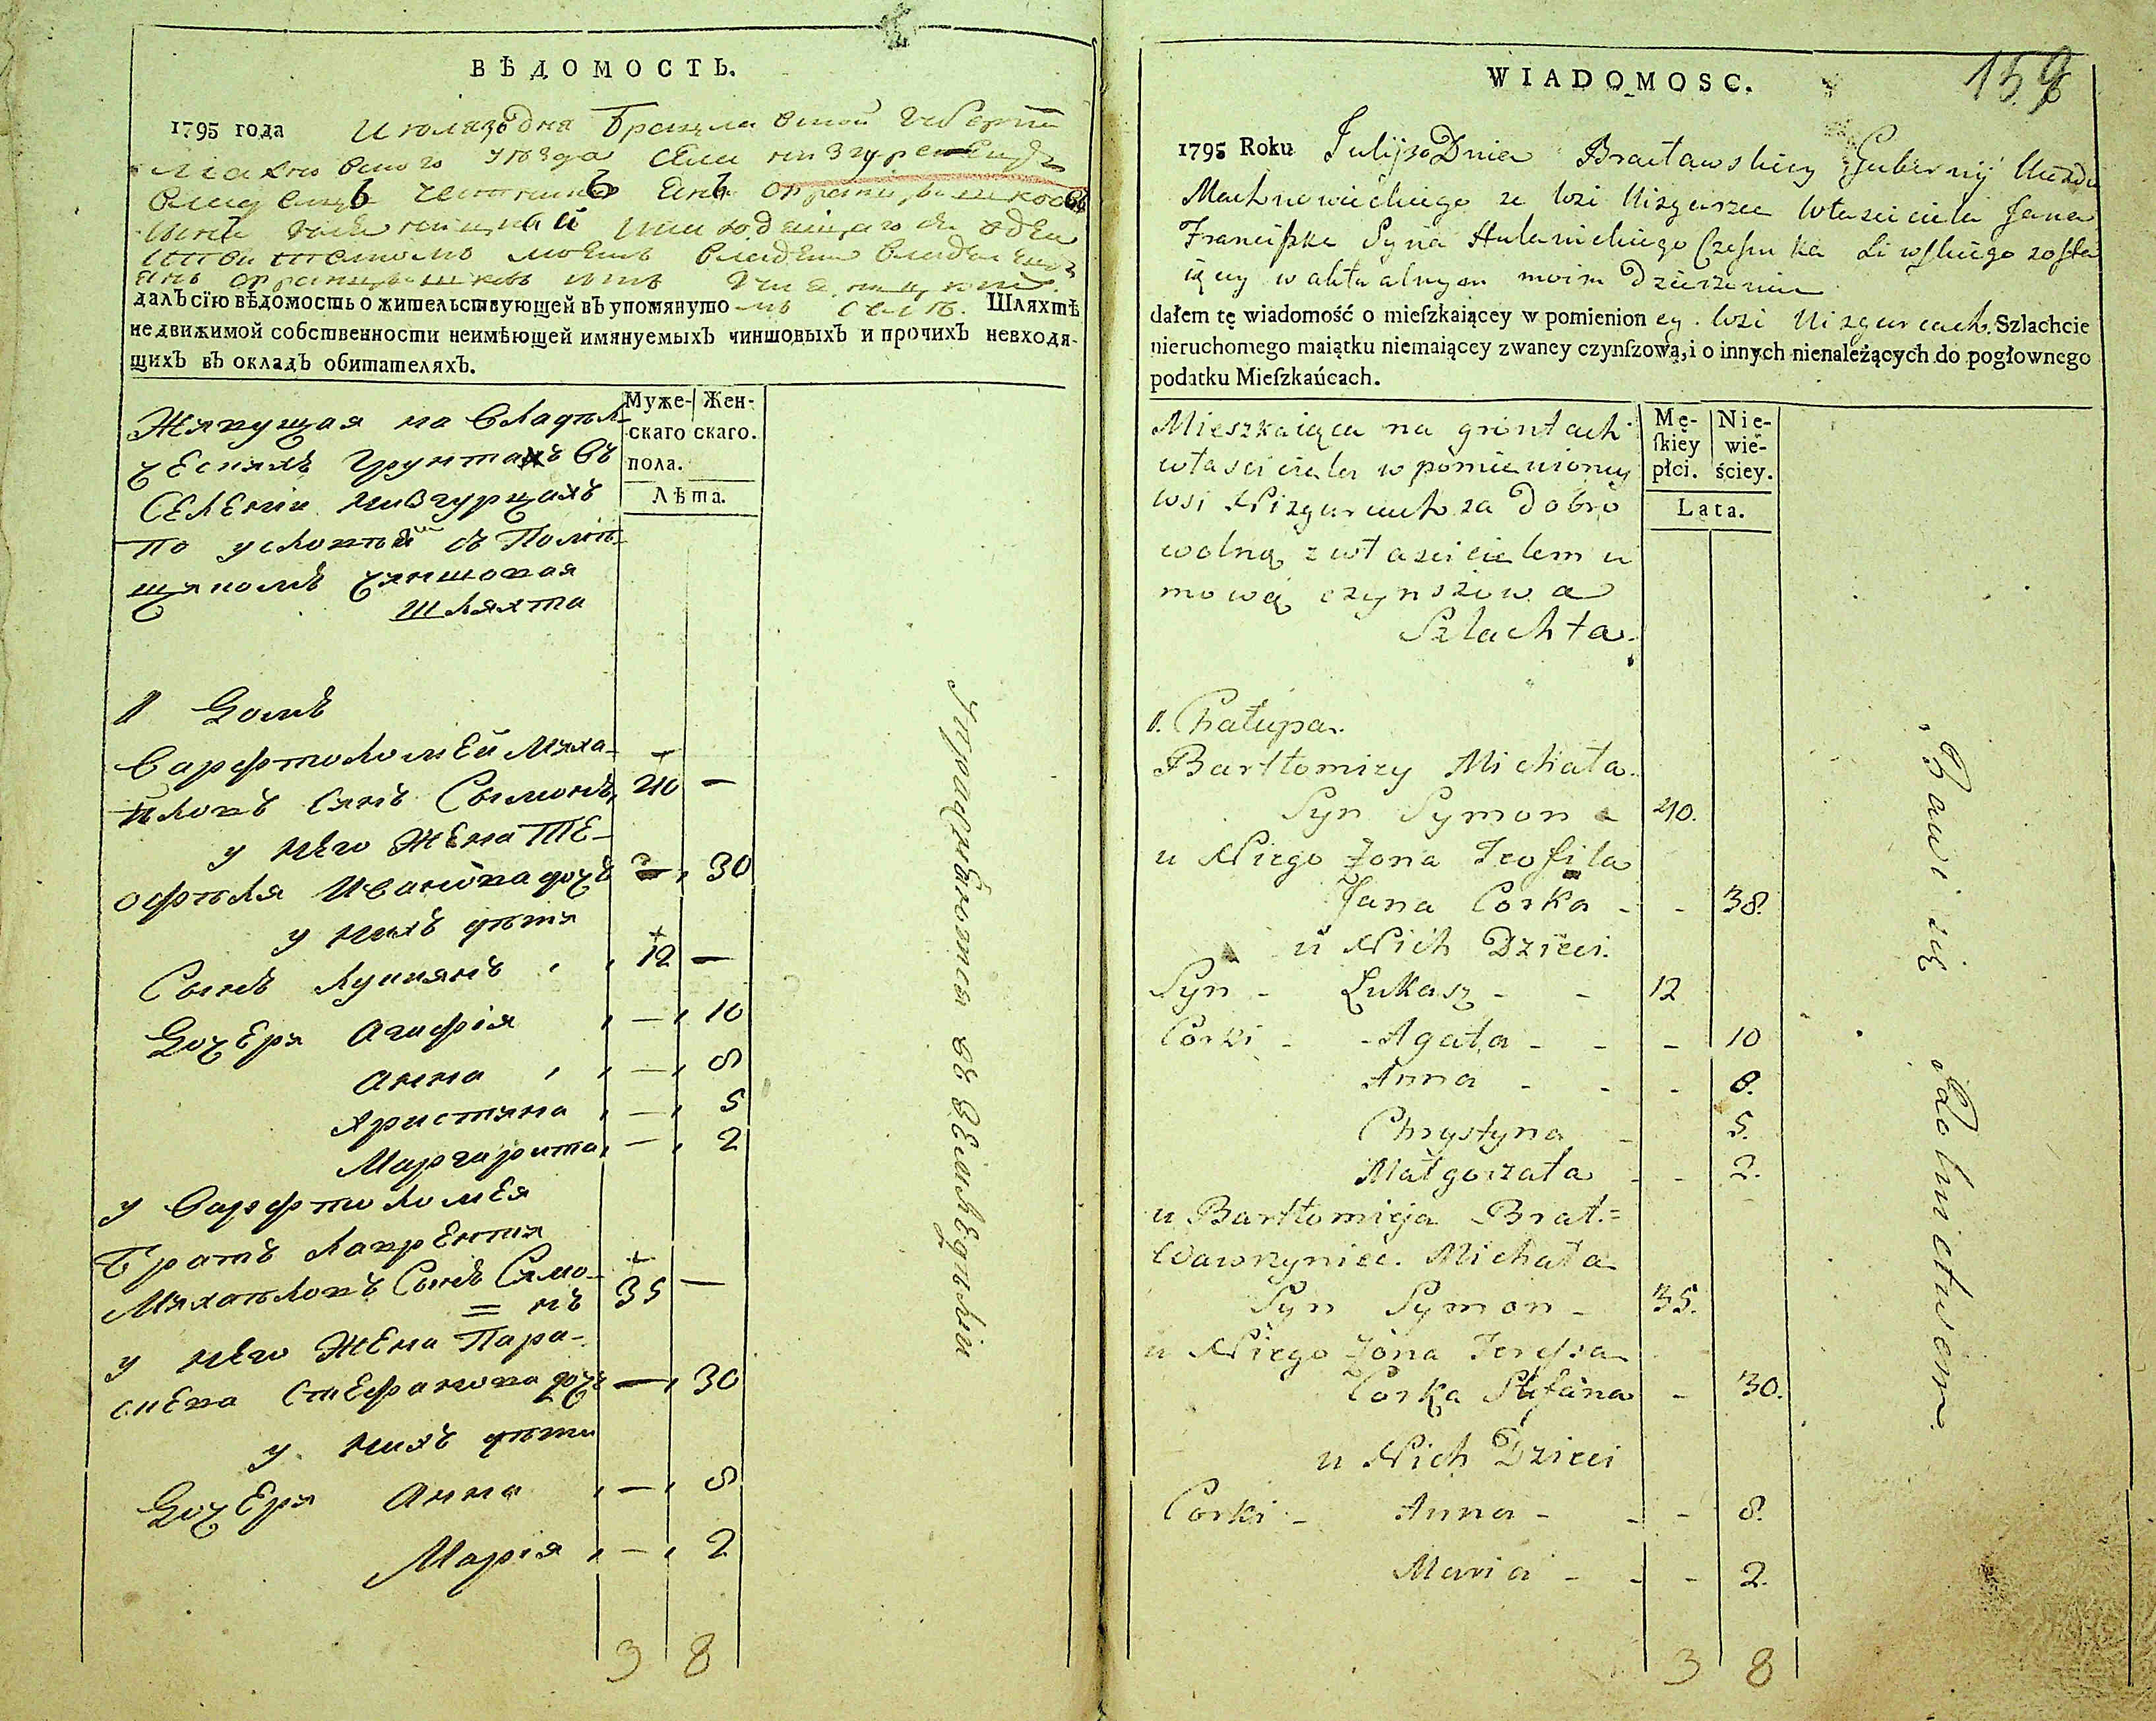 ВѢДОМОСТЬ.
1795 года Июля 30 дня Брацлавской Губернїи
уѣзда
далъ сїю вѣдомость о жительствующей въ упомянуто мъ селѣ. Шляхтѣ
недвижимой собственности неимѣющей имянуемыхъ чиншовыхъ и прочихъ невходя-
щихъ въ окладъ обитателяхъ.
Муже- Жен-
скаго скаго.
пола.
Лѣта.
Живущая на владѣл-
ческихъ грунтахъ въ
селении Низгурцахъ
по условной съ помѣ-
щикомъ чиншовая
шляхта
1 Домъ
Варфтоломей Миха-
йловъ синъ Сымонъ, 40 —
у него жена Те-
офиля Иванова дочь — 30
у нихъ дѣти
Сынъ Лукиянъ 12 —
Дочери Агафія — 10
Анна — 8
Христина — 5
Маргарита — 2
у Варфтоломея
братъ Лаврентия
Михайловъ сынъ Симо-
= нъ 35 —
у него жена Пара-
скева Стефанова дочь — 30
у нихъ дѣти
Дочери Анна — 8
Марія — 2
3 8
Упражняются въ земледѣліи
WIADOMOSC.
159
1795 Roku Julij 30 Dnia Bracławskiey Gubernij Uiazdu
Machnowieckiego ze wsi Nizgurzec własciciela Jana
Franciszka Syna Hulanickiego Czesnika Liwskiego zosta
iący w aktualnym moim Dzierzeniu
dałem tę wiadomość o mieſzkaiącey w pomienion ey wsi Nizgurcach Szlachcie
nieruchomego maiątku niemaiącey zwaney czynſzową, i o innych nienależących do pogłownego
podatku Mieſzkańcach.
Mę- Nie-
ſkiey wie-
płci. ściey.
Lata.
Mieszkaiąca na gruntach
własciciela w pomienioney
wsi Nizgurcach za dobro
wolną z włascicielem u
mową czynszowa
Szlachta.
1. Chałupa.
Bartłomiey Michała
Syn Symona 40.
u Niego Żona Teofila
Jana Corka - - 38.
u Nich Dzieci.
Syn - Łukasz - - 12
Corki - - Agata - - - 10
Anna - - - 8.
Chrystyna - 5.
Małgorzata - - 2.
u Bartłomieja Brat =
Wawrzyniec. Michała
Syn Symon - 35.
u Niego Żona Teressa
Corka Stefana - 30.
u Nich Dzieci
Corki - Anna - - - 8.
Maria - - - 2.
3 8
Bawi się Rolnictwem.